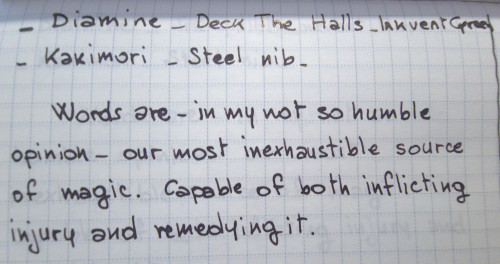 - Diamine - Deck The Halls - Inkvent Green
- Kakimori - Steel nib -
Words are - in my not so humble
opinion - our most inexhaustible source
of magic. Capable of both inflicting
injury and remedying it.